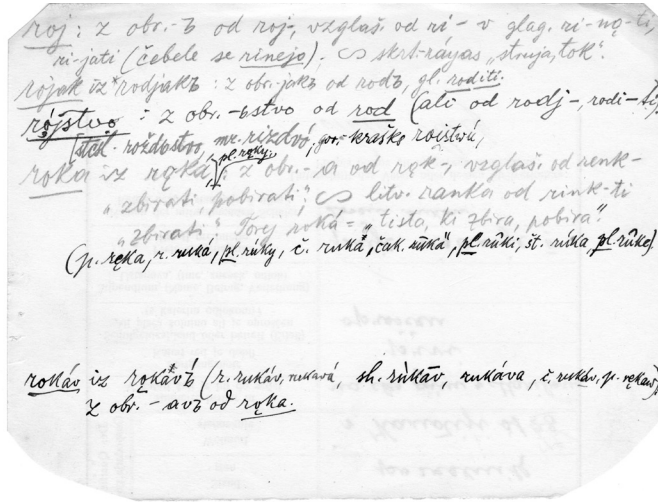 roj: z obr. -ъ od roj-, vzglaš. od ri- v glag. ri-nǫ-ti,
ri-jati (čebele se rinejo). ∽ skrt. ráyas "struja, tok".
rójak iz *rodjakъ: z obr. -jakъ od rodъ, gl. roditi.
rójstvo: z obr. -ьstvo od rod (ali od rodj-, rodi-ti),
(stcsl. roždьstvo, mr. rizdvó, gor.-kraško roistvú,
pl. rǫky,
roka iz rǫka: z obr. -a od rǫk-, vzglaš. od renk-
"zbirati, pobirati"; ∽ litv. ranka od rink-ti
"zbirati". Torej róka = "tista, ki zbira, pobira".
(p. ręka, r. ruká, pl. rúky, č. ruka, čak. rūkȁ, pl. rȗki, št. rúka, pl. rȗke).
rokáv iz rǫkávъ (r. rukáv, rukavá sh. rùkāv, rukáva, č. rukáv, p. rękaw),
z obr. -avъ od rǫka.